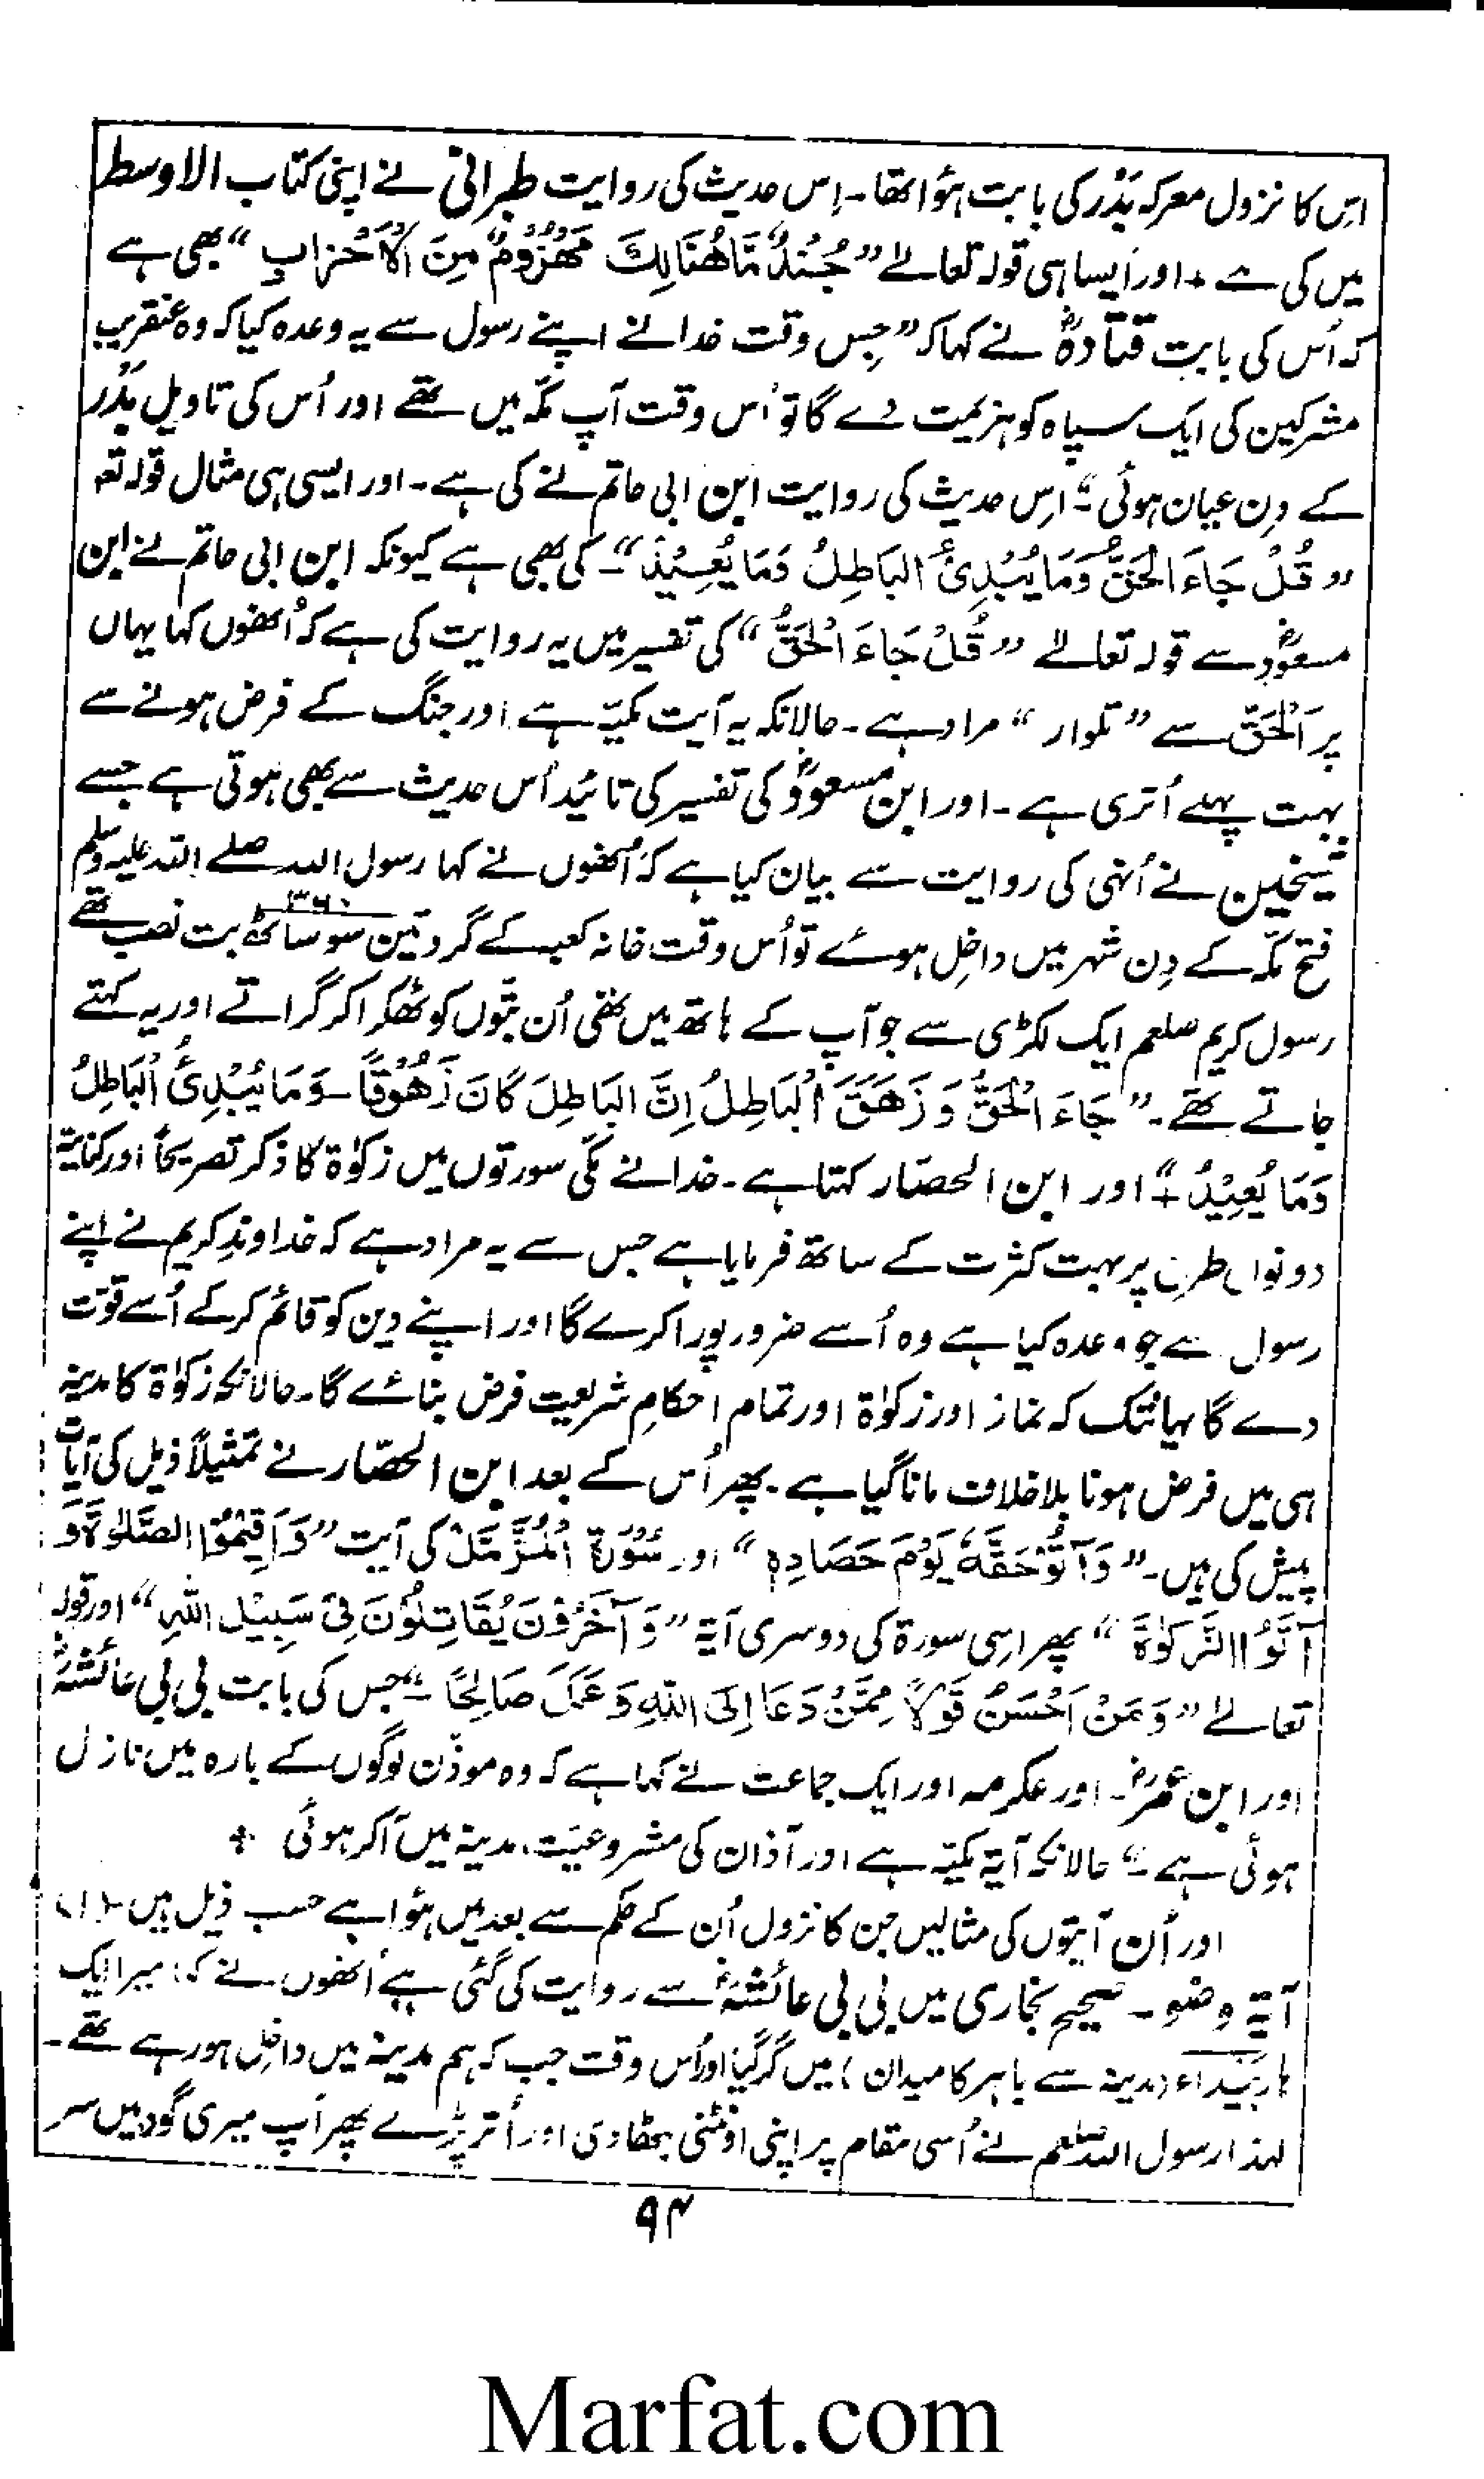 اس کا نزول معرکہ بَدْر کی بابت ہؤا تھا۔ اِس حدیث کی روایت طبرانی نے اپنی کتاب الاوسط
میں کی ہے + اور اَیسا ہی قولہ تعالےٰ ”جُنْدٌ مَّا هُنَالِكَ مَهْزُوْمٌ مِنَ الْاَحْزَابِ“ بھی ہے
کہ اُس کی بابت قتادہؓ نے کہا کہ ”جِس وقت خدا نے اپنے رسول سے یہ وعدہ کیا کہ وہ عنقریب
مشرکین کی ایک سپاہ کو ہزیمت دے گا تو اُس وقت آپ مکّہ میں تھے اور اُس کی تاویل بَدْر
کے دِن عیان ہوئی“۔ اِس حدیث کی روایت ابن ابی حاتم نے کی ہے۔ اور ایسی ہی مثال قولہ تعہ
”قُلْ جَاءَ الْحَقُّ وَمَا يُبْدِئُ الْبَاطِلُ وَمَا يُعِيْدُ“۔ کی بھی ہے کیونکہ ابن ابی حاتم نے ابن
مسعودؓ سے قولہ تعالےٰ ”قُلْ جَاءَ الْحَقُّ“ کی تفسیر میں یہ روایت کی ہے کہ اُنھوں کہا یہاں
پر اَلْحَقّ سے ”تلوار“ مراد ہے۔ حالانکہ یہ آیت مکیّہ ہے اور جنگ کے فرض ہونے سے
بہت پہلے اُتری ہے۔ اور ابن مسعودؓ کی تفسیر کی تائید اُس حدیث سے بھی ہوتی ہے جسے
شیخین نے اُنہی کی روایت سے بیان کیا ہے کہ اُنھوں نے کہا رسول اللہ صلے اللہ علیہ وسلم
فتح مکّہ کے دِن شہر میں داخِل ہوئے تو اُس وقت خانہ کعبہ کے گرد تین سو ساٹھ ۳۶۰ بت نصب تھے
رسول کریم صلعم ایک لکڑی سے جو آپ کے ہاتھ میں تھی اُن بتّوں کو ٹھکرا کر گراتے اور یہ کہتے
جاتے تھے۔ ”جَاءَ الْحَقُّ وَ زَهَقَ الْبَاطِلُ اِنَّ الْبَاطِلَ كَانَ زَهُوْقًا۔ وَمَا يُبْدِئُ الْبَاطِلُ
وَمَا يُعِيْدُ“+ اور ابن الحصّار کہتا ہے۔ خدا نے مکّی سورتوں میں زکوٰۃ کا ذکر تصریحاً اور کنایۃً
دونوں طرح پر بہت کثرت کے ساتھ فرمایا ہے جس سے یہ مراد ہے کہ خداوندِ کریم نے اپنے
رسول سے جو وعدہ کیا ہے وہ اُسے ضرور پورا کرے گا اور اپنے دین کو قائم کرکے اُسے قوّت
دے گا یہانتک کہ نماز اور زکوٰۃ اور تمام احکامِ شریعت فرض بنائے گا۔ حالانکہ زکوٰۃ کا مدینہ
ہی میں فرض ہونا بلا خلاف مانا گیا ہے۔ پھر اُس کے بعد ابن الحصّار نے تمثیلاً ذیل کی آیات
پیش کی ہیں۔ ”وَآتُوْ حَقَّهٗ يَوْمَ حَصَادِهٖ“ اور سُوْرَۃ الْمُزَّمِّلْ کی آیت ”وَاَقِيْمُوْا الصَّلٰوةَ وَ
آتَوُا الزَّكٰوةَ“ پھر اِسی سورۃ کی دوسری آیۃ ”وَآخَرُوْنَ يُقَاتِلُوْنَ فِيْ سَبِيْلِ اللهِ“ اور قولہ
تعالےٰ ”وَمَنْ اَحْسَنُ قَوْلًا مِمَّنْ دَعَا اِلَى اللهِ وَعَمِلَ صَالِحًا“۔ جس کی بابت بی بی عائشہؓ
اور ابن عمرؓ۔ اور عکرمہ اور ایک جماعت نے کہا ہے کہ وہ موذّن لوگوں کے بارہ میں نازل
ہوئی ہے“۔ حالانکہ آیۃ مکیّہ ہے اور آذان کی مشروعیّت مدینہ میں آکر ہوئی +
اور اُن آیتوں کی مثالیں جن کا نزول اُن کے حکم سے بعد میں ہؤا ہے حسب ذیل ہیں۔ (۱)
آیۃ وضو۔ صحیح بخاری میں بی بی عائشہؓ سے روایت کی گئی ہے اُنھوں نے کہا میرا ایک
ہار بَیْداء (مدینہ سے باہر کا میدان) میں گر گیا اور اُس وقت جب کہ ہم مدینہ میں داخِل ہو رہے تھے۔
لہذا رسول اللہ صلعم نے اُسی مقام پر اپنی اونٹنی بٹھا دی اور اُتر پڑے پھر آپ میری گود میں سر
۹۴
Marfat.com